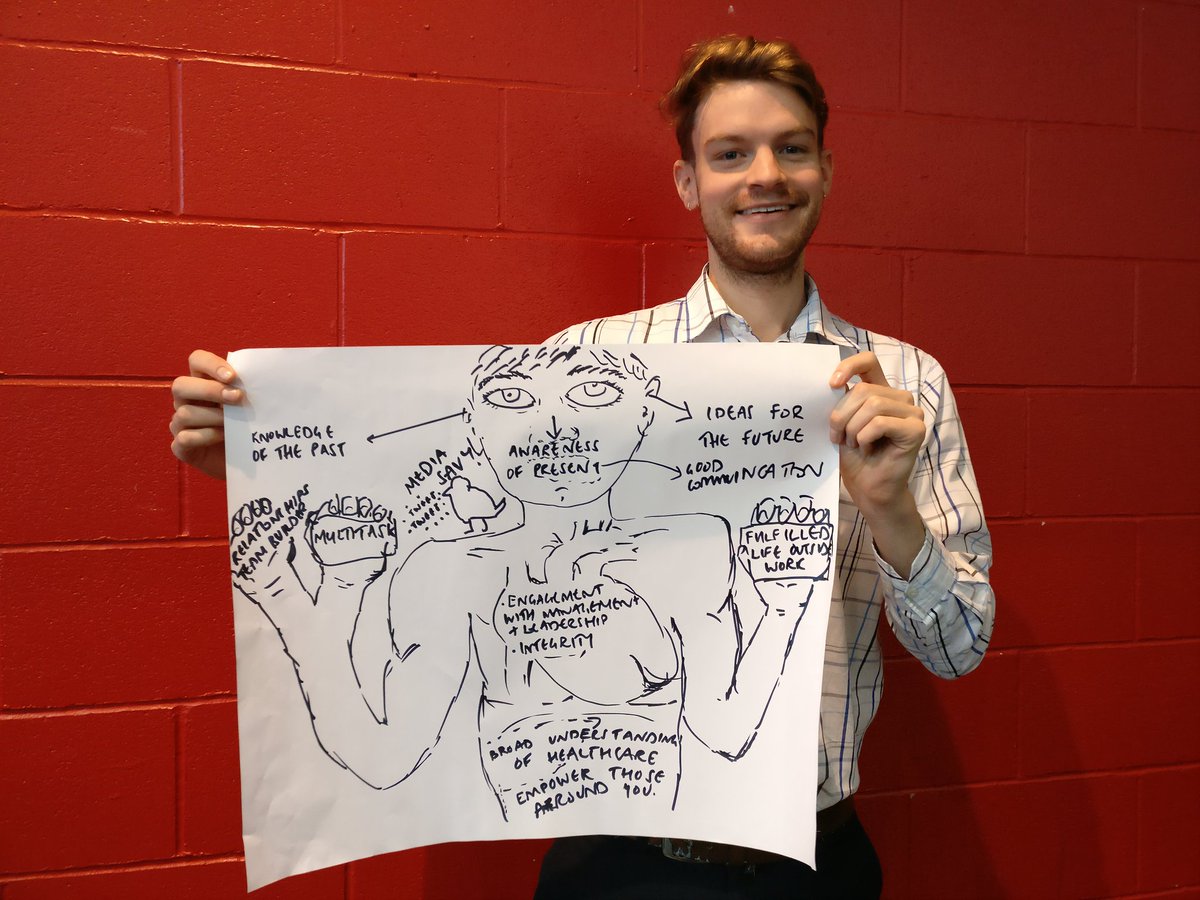 KNOWLEDGE
OF THE PAST
IDEAS FOR
THE FUTURE
AWARENESS
OF PRESENT
GOOD
COMMUNICATION
MEDIA
SAVY
TWEET
TWEET
RELATIONSHIPS
TEAM BUILDER
MULTITASK
FULFILLED
LIFE OUTSIDE
WORK
· ENGAGEMENT
WITH MANAGEMENT
+ LEADERSHIP
· INTEGRITY
BROAD UNDERSTANDING
OF HEALTHCARE
EMPOWER THOSE
ARROUND YOU.